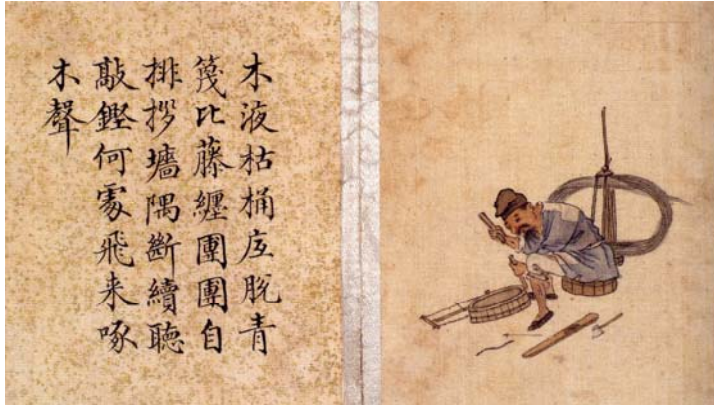 木液枯桶底脫青
篾比藤纏團團自
排拶墻隅斷續聽
敲鏗何處飛来啄
木聲